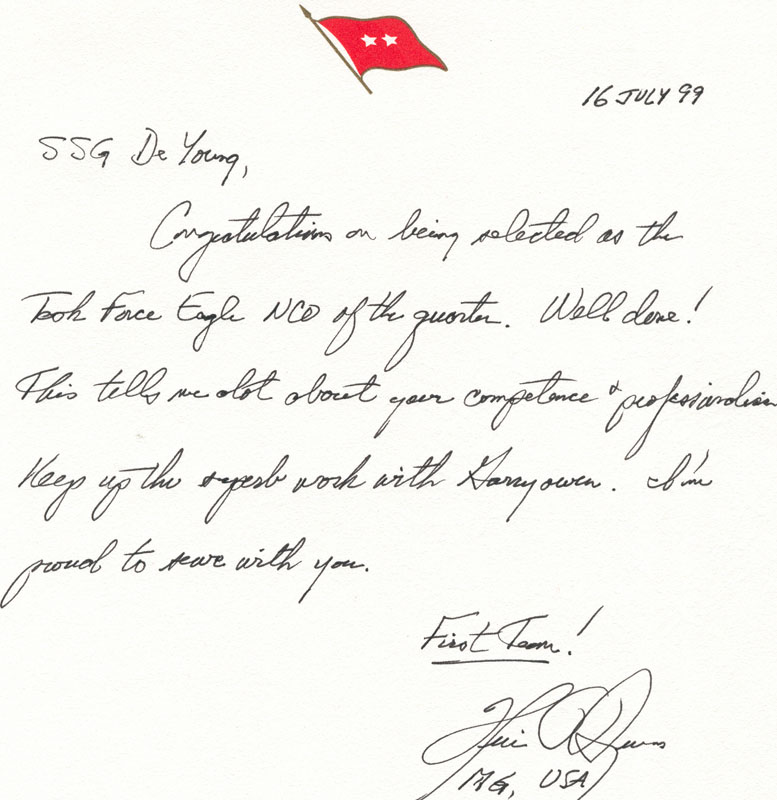 16 JULY 99
SSG De Young,
Congratulations on being selected as the
Task Force Eagle NCO of the quarter. Well done!
This tells me alot about your competence & professionalism
Keep up the superb work with Garryowen. I'm
proud to serve with you.
First Team!
MG, USA